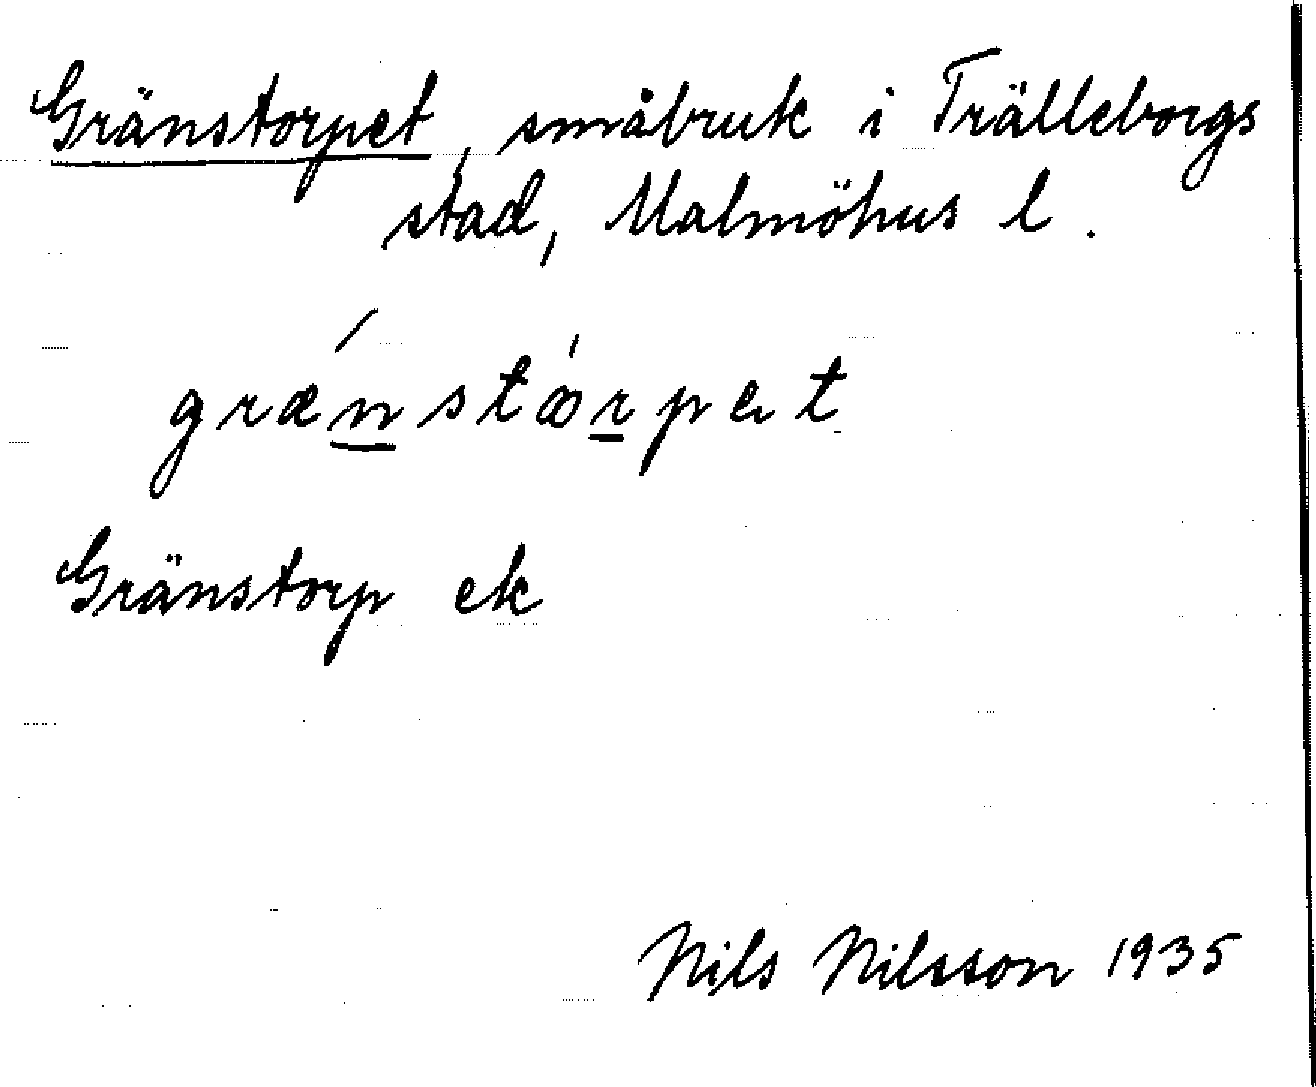 Gränstorpet, småbruk i Trälleborgs
stad, Malmöhus l.
grænstɷrpet
Gränstorp ek
Nils Nilsson 1935